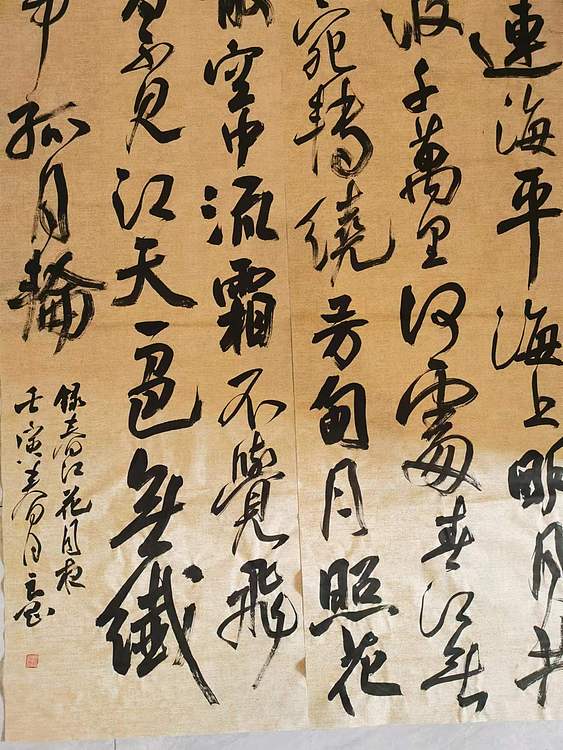 連海平海上明月共
波千萬里何處春江無
宛轉繞芳甸月照花
空中流霜不覺飛
不見江天一色無纖
中孤月輪
錄春江花月夜
壬寅春